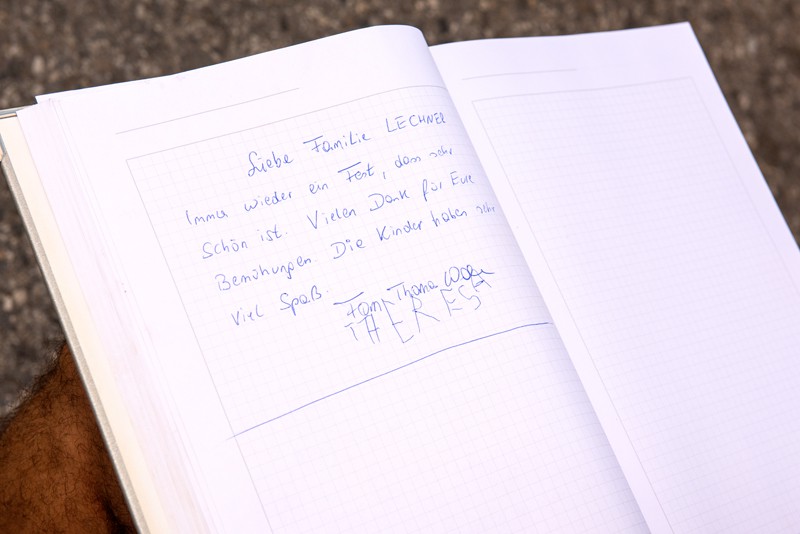 Liebe Familie LECHNER
Immer wieder ein Fest, dass sehr
schön ist. Vielen Dank für Eure
Bemühungen. Die Kinder haben sehr
viel Spaß.
Fam. Thomas
THERESA